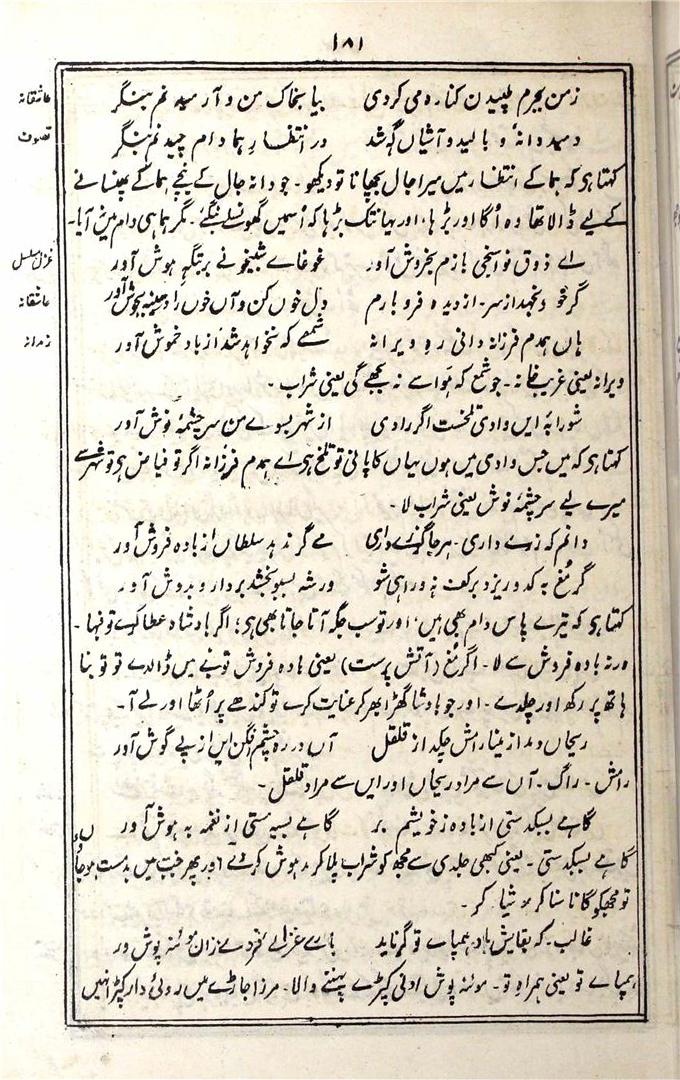 ۱۸۱
عاشقانہ زمن بجرم طپیدن کنارہ می کردی بیا بخاک من و آرمیدنم بنگر
تصوف دمید دانہ و بالید و آشیاں گہ شد در انتظار ہما دام چیدنم بنگر
کہتا ہی کہ ہما کے انتظار میں میرا جال بچھانا تو دیکھو۔ جو دانہ جال کے نیچے ہما کے پھنسانے
کے لیے ڈالا تھا وہ اُگا اور بڑہا، اور یہانتک بڑہا کہ اُسمیں گھونسلے بنگئے۔ مگر ہما ہی دام میں نہ آیا۔
غزل مسلسل اے ذوق نواسنجی بازم بخروش آور غوغاے شبیخونے بر بنگہِ ہوش آور
عاشقانہ گر خود نجہد از سر۔ از دیدہ فرو بارم دل خوں کن و آں خوں را در سینہ بجوش آور
زمانہ ہاں ہمدم فرزانہ دانی رہِ ویرانہ شمعے کہ نخواہد شد از باد خموش آور
ویرانہ یعنی غریب خانہ۔ جو شمع کہ ہوا سے نہ بجھے گی یعنی شراب۔
شورابۂ ایں وادی تلخست اگر رادی از شہر بسوے من سرچشمۂ نوش آور
کہتا ہی کہ میں جس وادی میں ہوں یہاں کا پانی تو تلخ ہی اے ہمدم فرزانہ اگر تو فیاض ہی تو شہر سے
میرے لیے سرچشمۂ نوش یعنی شراب لا۔
دانم کہ زرے داری۔ ہر جا گذرے داری مے گر ندہد سلطاں از بادہ فروش آور
گر مُغ بہ کدو ریزد برکف نہ و راہی شو ور شہ بسبو بخشد بردار و بدوش آور
کہتا ہی کہ تیرے پاس دام بھی ہیں، اور تو سب جگہ آتا جاتا بھی ہی؛ اگر بادشاہ عطا کرے تو فبہا۔
ورنہ بادہ فروش سے لا۔ اگر مُغ (آتش پرست) یعنی بادہ فروش تونبے میں ڈالدے تو تونبا
ہاتھ پر رکھ اور چلدے۔ اور جو بادشاہ گھڑا بھر کر عنایت کرے تو کندھے پر اُٹھا اور لے آ۔
ریحاں دمد از مینا رامش چکد از قلقل آں در رہ چشم افگن ایں از پے گوش آور
رامش۔ راگ۔ آں سے مراد ریحاں اور ایں سے مراد قلقل۔
گاہے بسبکدستی از بادہ ز خویشم بر گاہے بسیہ مستی از نغمہ بہ ہوش آور
گاہے بسبکدستی۔ یعنی کبھی جلدی سے مجھ کو شراب پلا کر مدہوش کر دے اور پھر جب میں بدمست ہو جاؤں
تو مجھکو گانا سنا کر ہوشیار کر۔
غالب۔ کہ بقایش باد ہمپاے تو گر ناید بارے غزلے فردے زاں موئنہ پوش آور
ہمپاے تو یعنی ہمراہِ تو۔ موئنہ پوش ادنی کپڑے پہننے والا۔ مرزا جاڑے میں روئی دار کپڑا نہیں